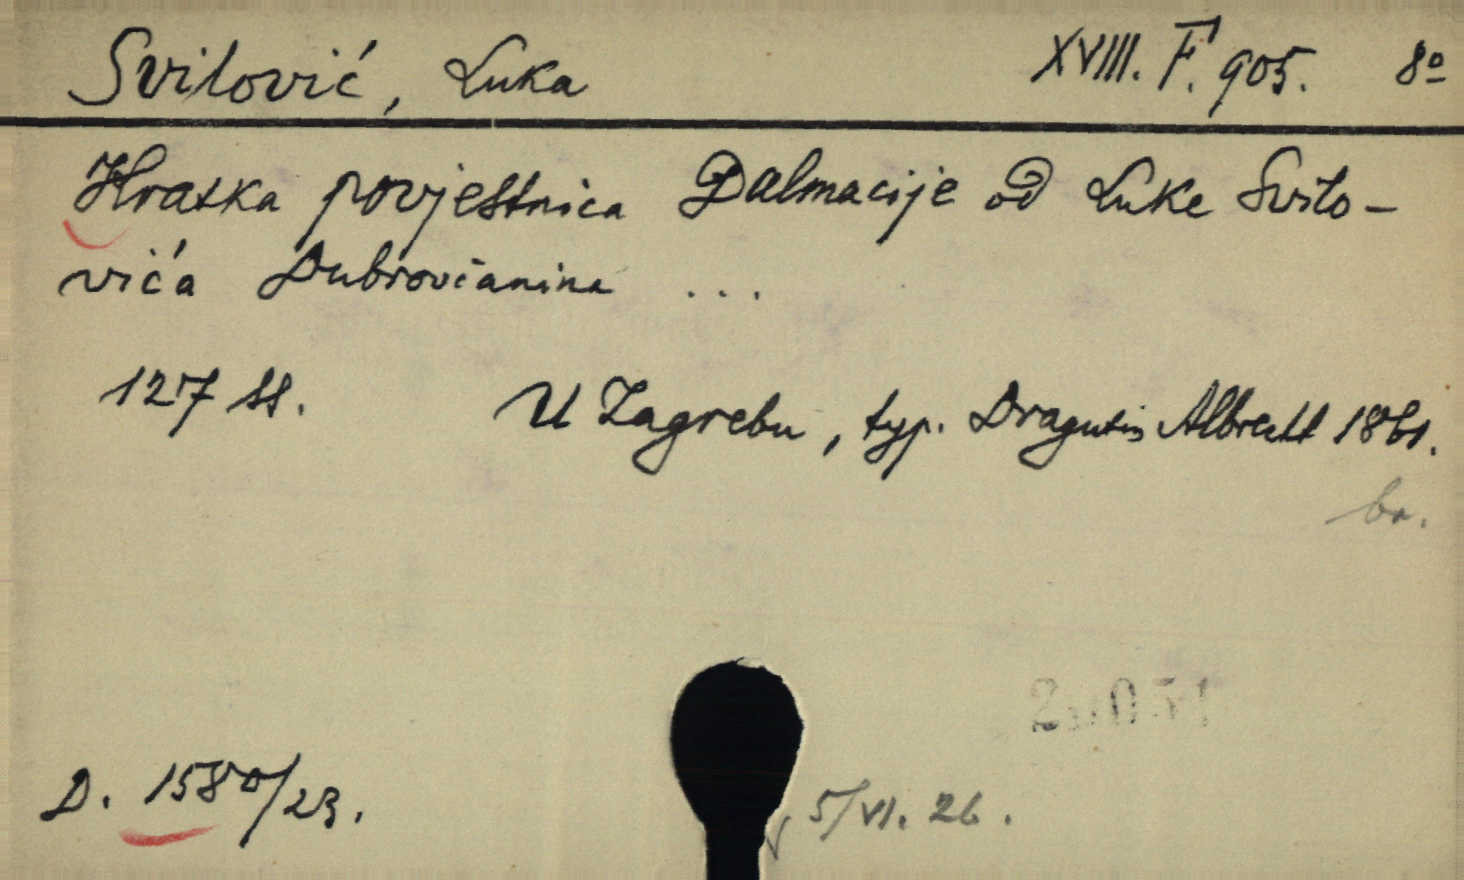 Svilović, Luka XVIII. F. 905. 8º
Kratka povjestnica Dalmacije od Luke Svilo-
vića Dubrovčanina ...
127 ss. U Zagrebu, typ. Dragutin Albrecht 1861.
ba.
D. 1580/23. 5/VI. 26.